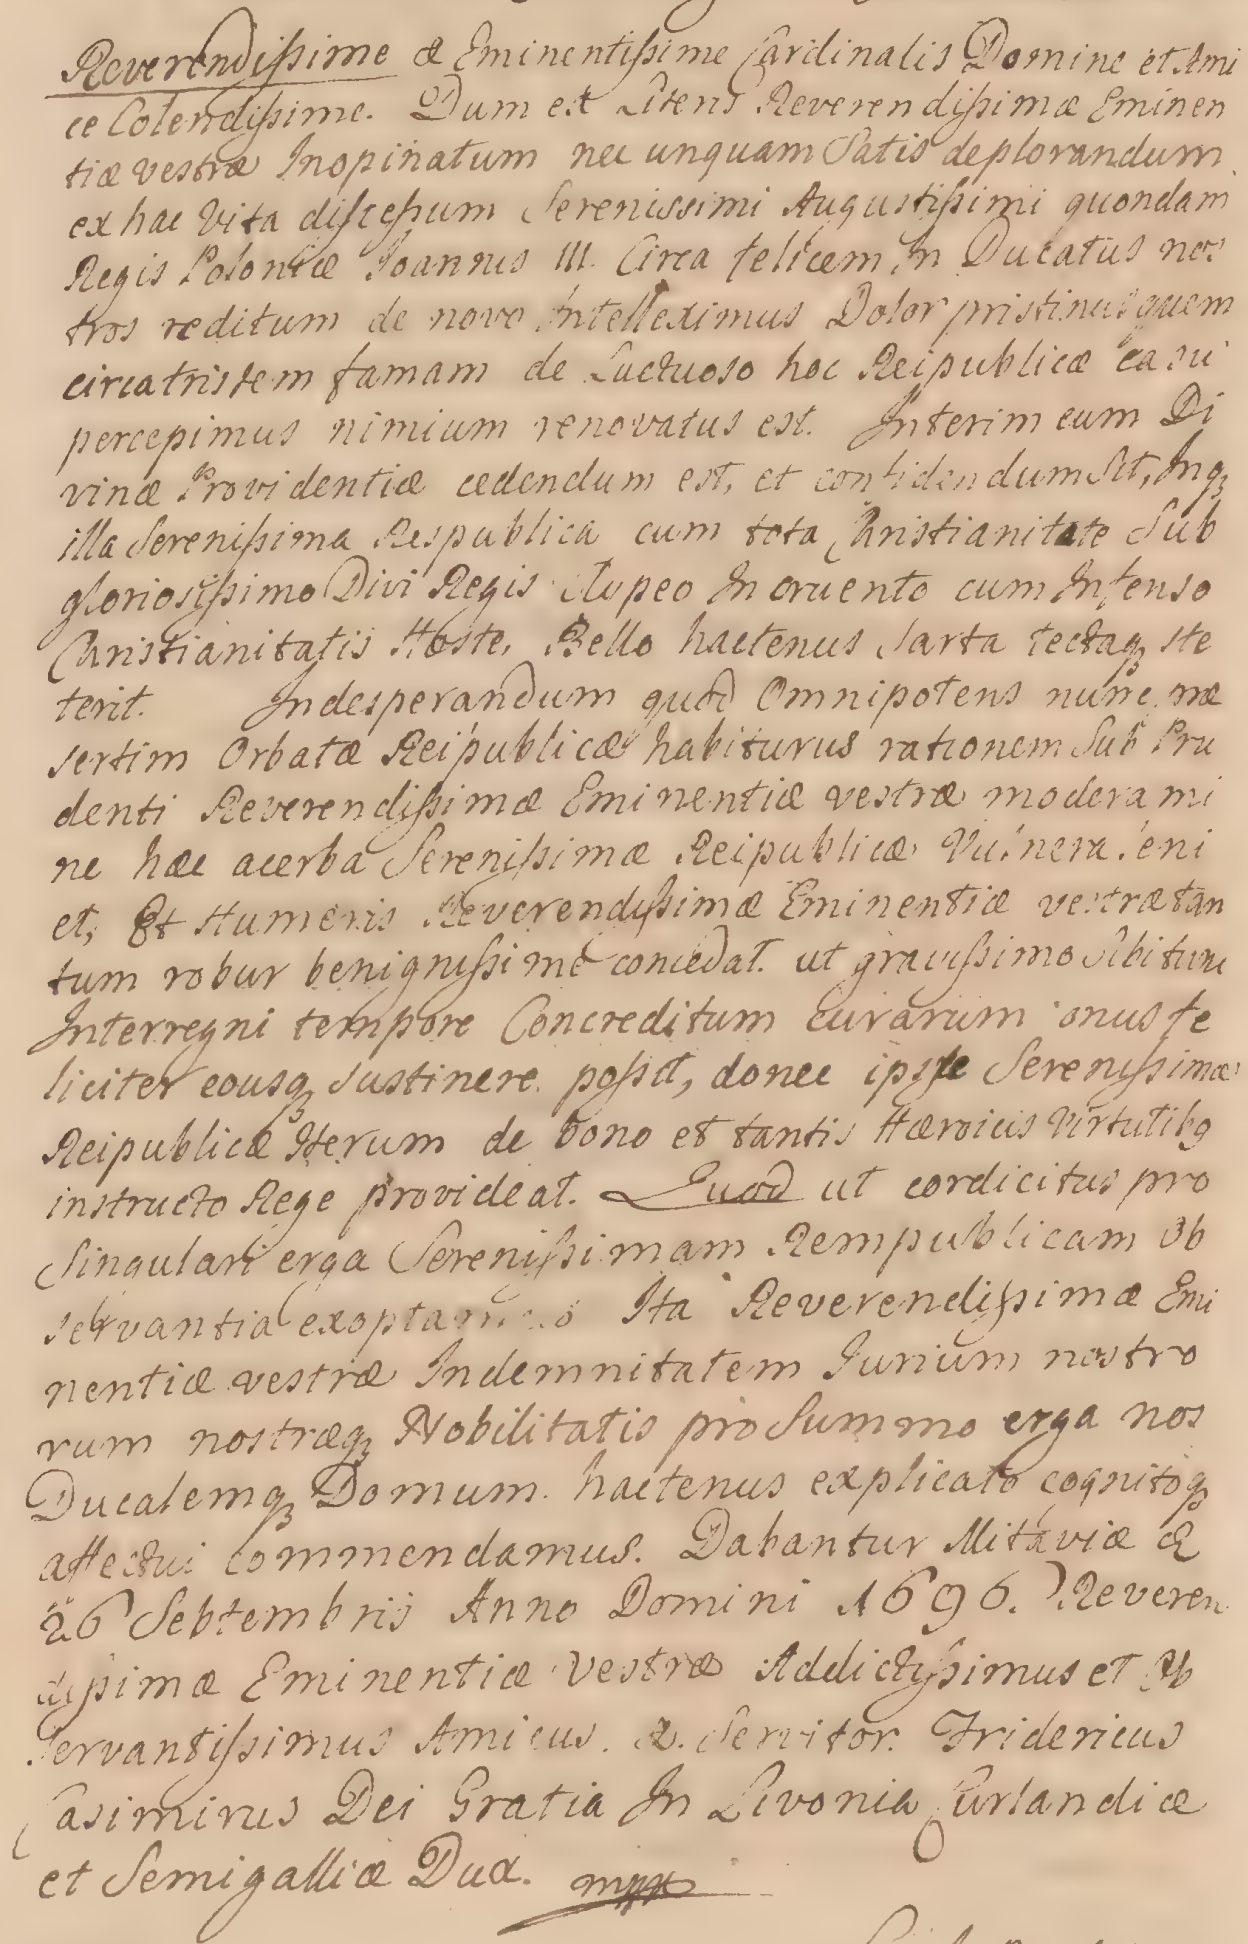 Reverendissime & Eminentissime Cardinalis Domine et Ami
ce Colendissime. Dum ex Literis Reverendissimæ Eminen
tiæ vestræ Inopinatum nec unquam Satis deplorandum
ex hac Vita discessum Serenissimi Augustissimi quondam
Regis Poloniæ Joannis III. Circa felicem in Ducatus nos
tros reditum de novo Intelleximus Dolor pristinus quem
circa tristem famam de Luctuoso hoc Reipublicæ casu
percepimus nimium renovatus est. Interim cum Di
vinæ Providentiæ cedendum est, et confidendum sit, Inqȝ
illa Serenissima Respublica cum tota Christianitate Sub
gloriosissimo Divi Regis In cruento cum Infenso
Christianitatis Hoste, Bello hactenus Sarta tectaqȝ ste
terit. Indesperandum quod Omnipotens nunc præ
sertim Orbatæ Reipublicæ habiturus rationem Sub Pru
denti Reverendissimæ Eminentiæ vestræ moderami
ne hæc acerba Serenissimæ Reipublicæ Vulnera leni
et, Et Humeris Reverendissimæ Eminentiæ vestræ tan
tum robur benignissime concedat. ut gravissimo Sibi tunc
Interregni tempore Concreditum curarum onus fe
liciter eousqȝ Sustinere possit, donec ipse Serenissimæ
Reipublicæ Iterum de bono et tantis Hæroicis Virtutibȝ
instructo Rege provideat. Quod ut cordicitus pro
Singulari erga Serenissimam Rempublicam Ob
servantia exoptamus Ita Reverendissimæ Emi
nentiæ vestræ Indemnitatem Jurium nostro
rum nostræqȝ Nobilitatis pro Summo erga nos
Ducalemqȝ Domum hactenus explicato cognitoqȝ
affectui commendamus. Dabantur Mitaviæ
26 Septembris Anno Domini 1696. Reveren
dissimæ Eminentiæ Vestræ Addictissimus et Ob
servantissimus Amicus. &. Servitor. Fridericus
Casimirus Dei Gratia In Livonia Curlandiæ
et Semigalliæ Dux. mppr